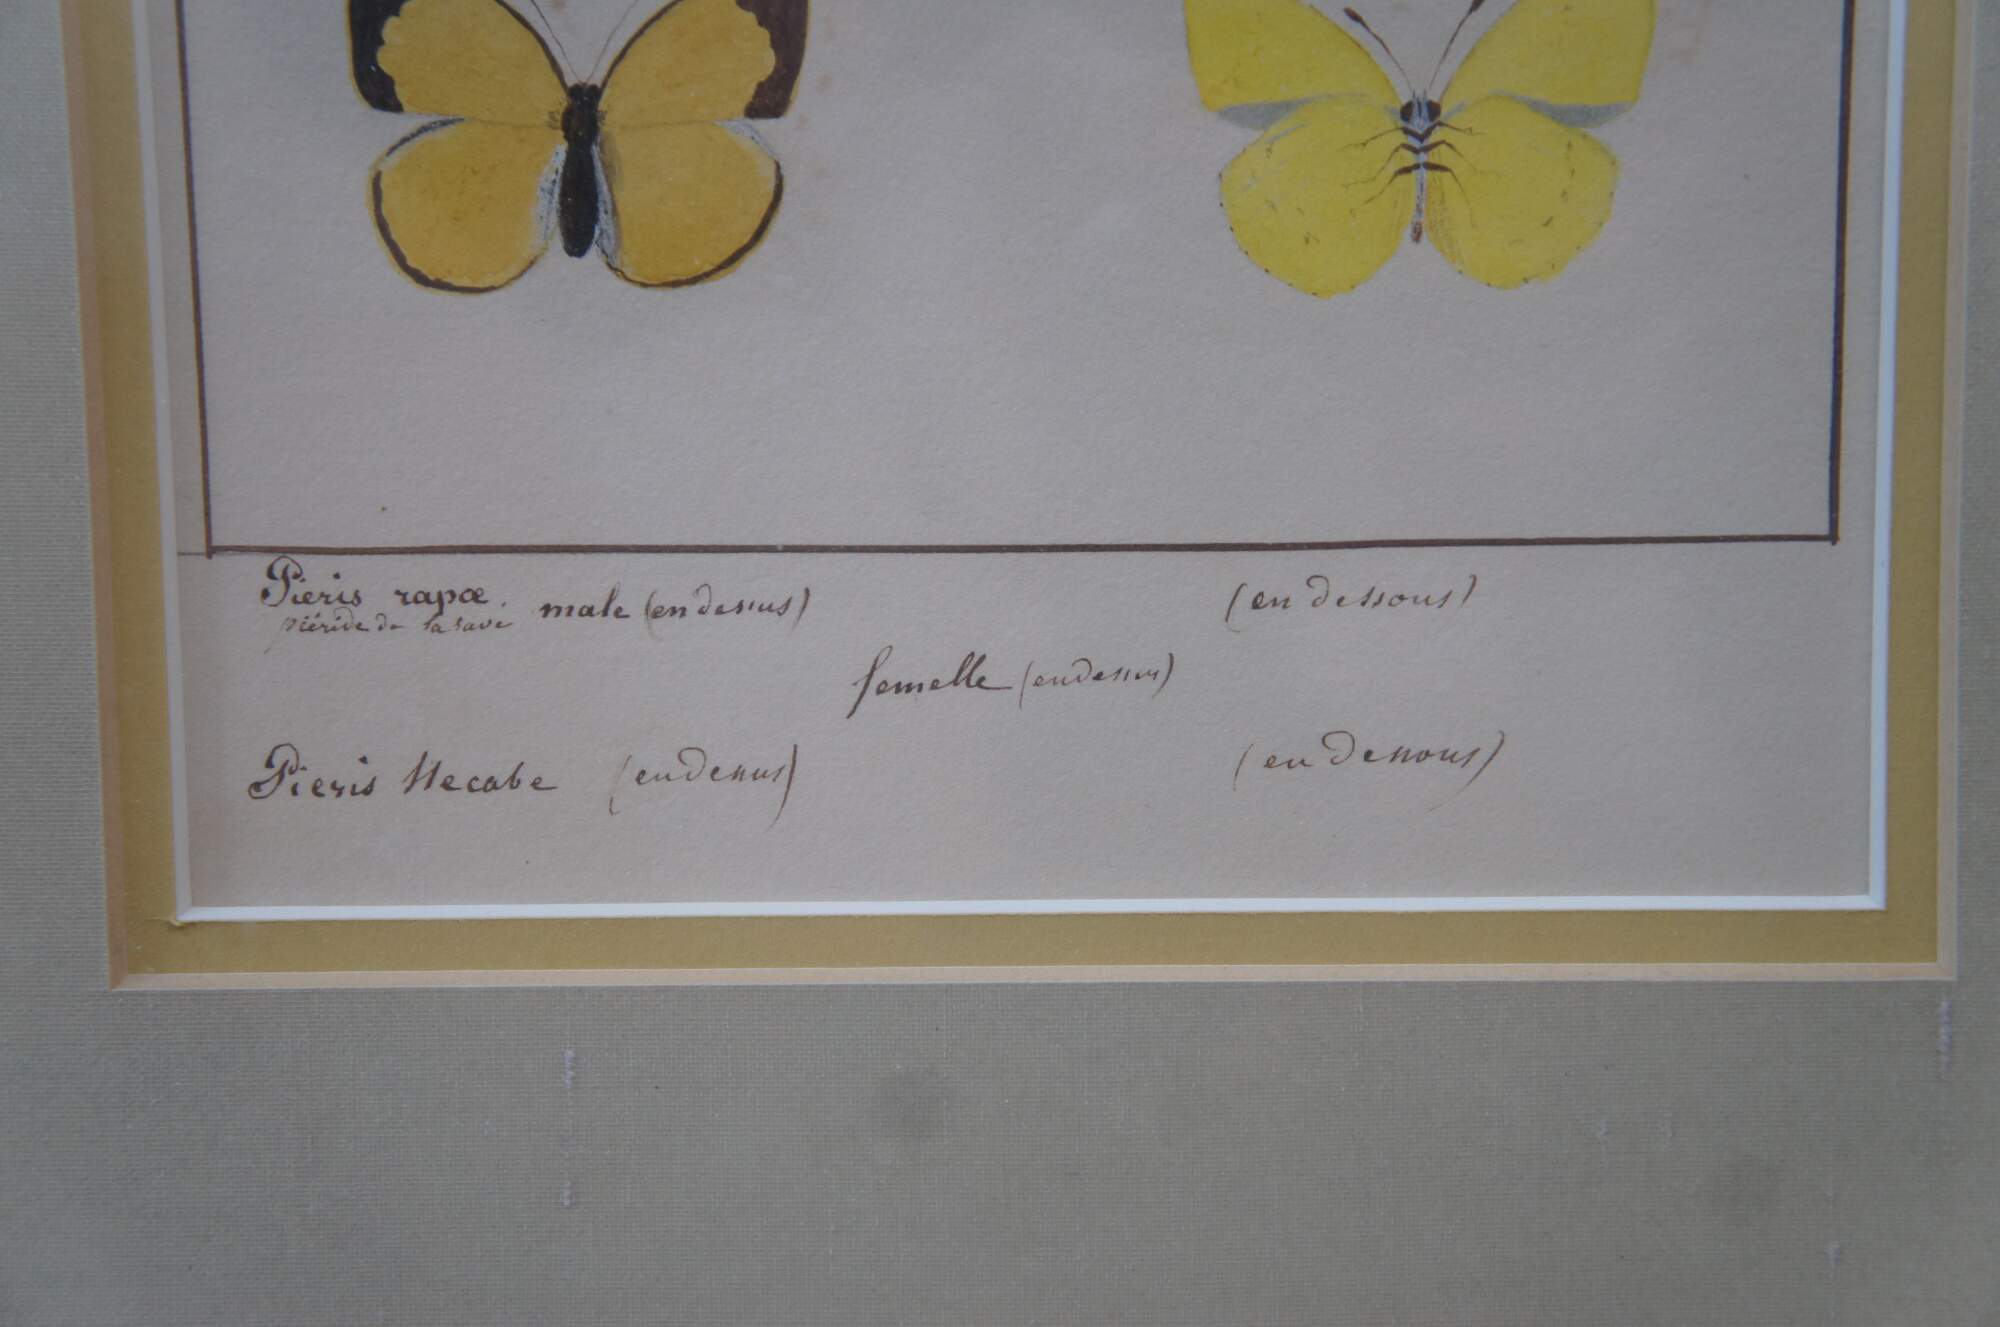 Pieris rapæ. male (en dessus) (en dessous)
piéride de la rave
femelle (en dessus)
Pieris Hecabe (en dessus) (en dessous)